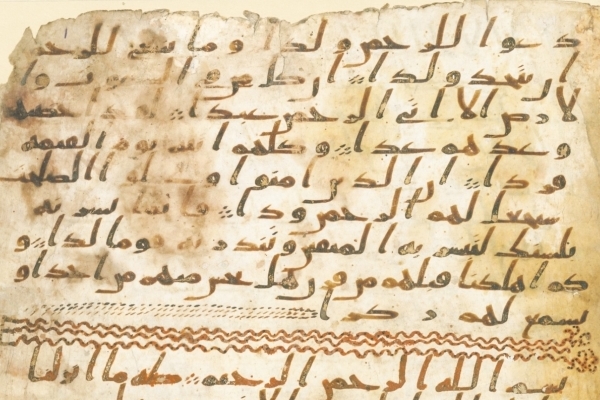 دعوا للرحمن ولدا وما ينبغى للرحمن
ان يتخذ ولدا ان كل من فى السموت وا
لارض الا اتى الرحمن عبدا لقد احصيهم
وعدهم عدا وكلهم اتيه يوم القيمه
فردا ان الذين امنوا وعملوا الصلحت
سيجعل لهم الرحمن ودا فانما يسرنه
بلسنك لتبشر به المتقين وتنذر به قوما لدا و
كم اهلكنا قبلهم من قرن هل تحس منهم من احد او
تسمع لهم ركزا
بسم الله الرحمن الرحيم طه ما انزلنا